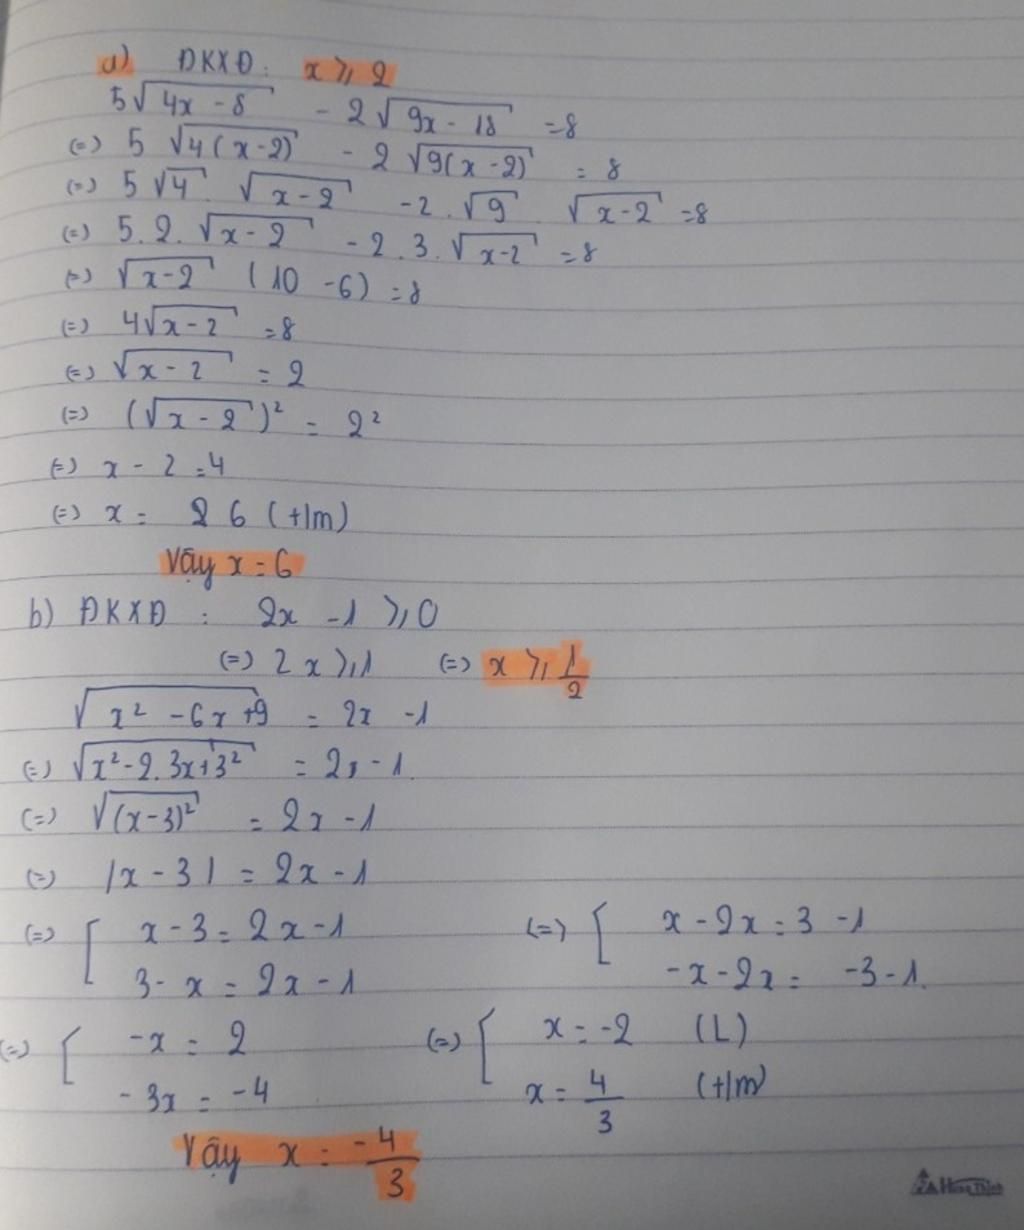 a) ĐKXĐ : x ⩾ 2
5√(4x - 8) - 2√(9x - 18) = 8
(=) 5 √(4(x-2)) - 2 √(9(x-2)) = 8
(=) 5 √4 . √(x-2) - 2 . √9 . √(x-2) = 8
(=) 5.2.√(x-2) - 2.3.√(x-2) = 8
(=) √(x-2) (10 - 6) = 8
(=) 4√(x-2) = 8
(=) √(x-2) = 2
(=) (√(x-2))² = 2²
(=) x - 2 = 4
(=) x = 6 (t/m)
Vậy x = 6
b) ĐKXĐ : 2x - 1 ⩾ 0
(=) 2x ⩾ 1 (=) x ⩾ 1/2
√(x² - 6x + 9) = 2x - 1
(=) √(x² - 2.3x + 3²) = 2x - 1
(=) √((x-3)²) = 2x - 1
(=) |x - 3| = 2x - 1
(=) [ x - 3 = 2x - 1 (=) [ x - 2x = 3 - 1
3 - x = 2x - 1 -x - 2x = -3 - 1
(=) [ -x = 2 (=) [ x = -2 (L)
-3x = -4 x = 4/3 (t/m)
Vậy x = -4/3